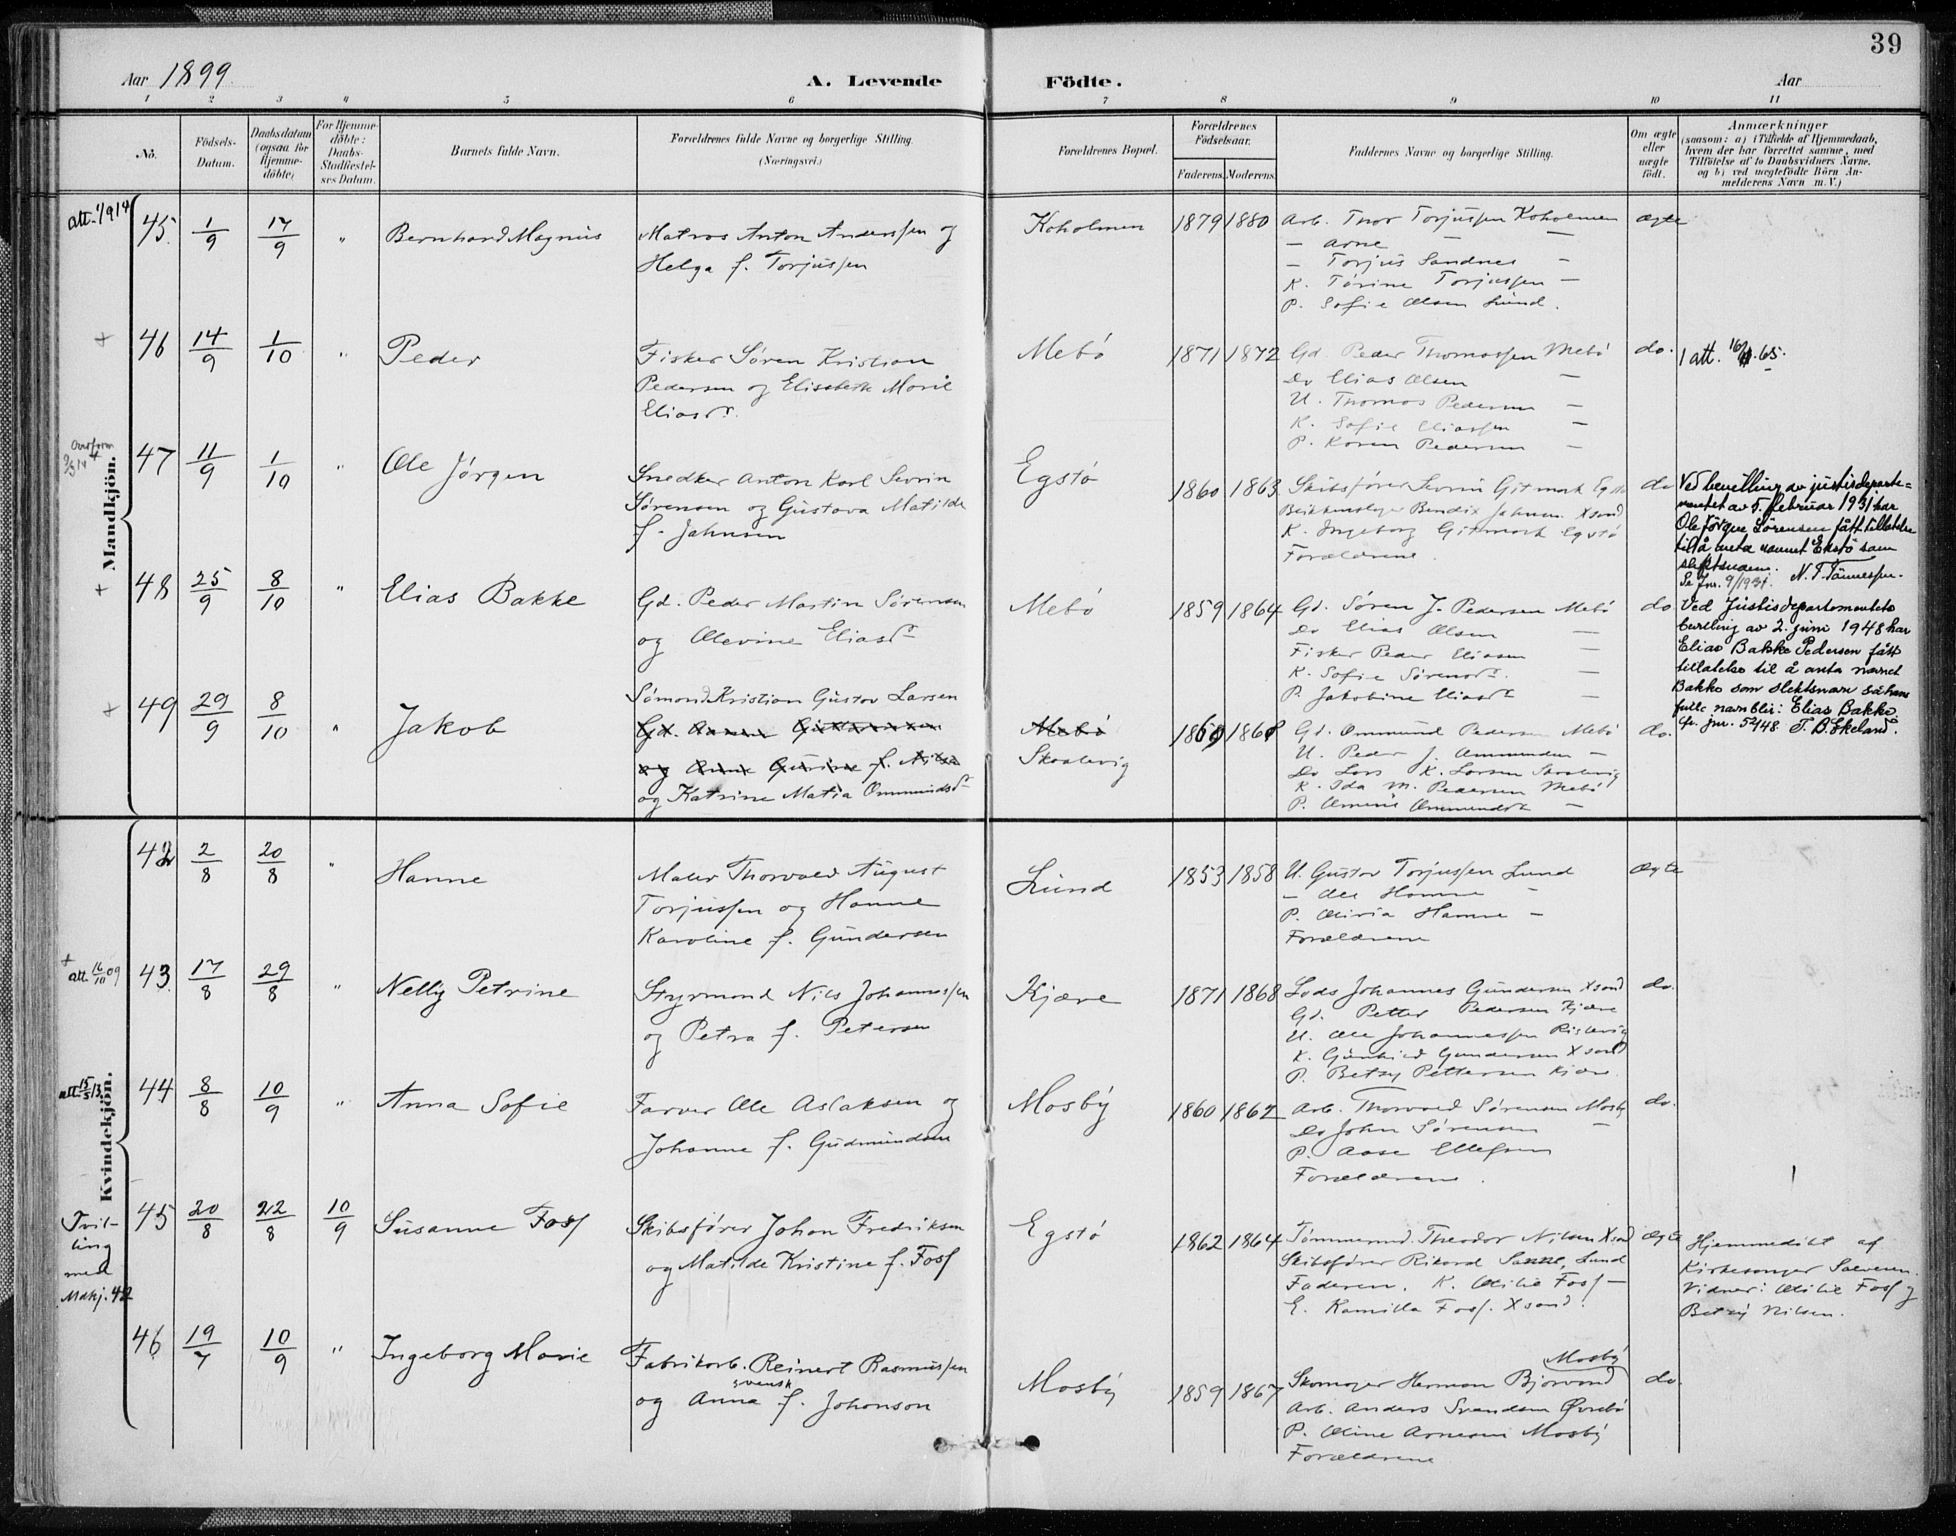 39
Aar 1899. A. Levende Födte. Aar
1 2 3 4 5 6 7 8 9 10 11
No. Födsels-Datum. Daabsdatum (ogsaa for Hjemmedöbte) For Hjemmedöbte: Daabs-Stadfæstelses Datum. Barnets fulde Navn. Forældrenes fulde Navne og borgerlige Stilling. (Næringsvei.) Forældrenes Bopæl. Forældrenes Födselsaar. Faderens. Moderens. Faddernes Navne og borgerlige Stilling. Om ægte eller uægte födt. Anmærkninger
(saasom: a) i Tilfælde af Hjemmedaab, hvem der har forrettet samme, med Tilföielse af to Daabsvidners Navne, og b) ved uægtefödte Börn Anmelderens Navn m. V.)
Mandkjön.
att. 1/9 14
45. 1/9 17/9 " Bernhard Magnus
Matros Anton Anderssen og
Helga f. Torjussen
Koholmen 1879 1880
Arb. Thor Torjussen Koholmen
— Arne —
— Torjus Sandnes —
K. Torine Torjussen —
P. Sofie Olsen Lund.
ægte
46 14/9 1/10 " Peder
Fisker Sören Kristian
Pedersen og Elisabeth Marie
Eliasdr.
Mebö 1871 1872
Gd. Peder Thomassen Mebö
Do Elias Olsen —
U. Thomas Pedersen —
K. Sofie Eliassen —
P. Karen Pedersen —
do.
1 att. 65.
47 11/9 1/10 " Ole Jörgen
Snedker Anton Karl Sevrin
Sörensen og Gustava Matilde
f. Jahnsen
Egstö 1860 1863
Skibsförer Sevrin Gitmark Egstö
Bendix Jahnsen Xsand
K. Ingeborg Gitmark Egstö
Forældrene.
do
Ved bevilling av justisdeparte-
mentet av 5. februar 1931 har
Ole Jörgen Sörensen fått tillatelse
til å anta navnet Ekstö som
slektsnavn.
Se Jnr. 9/1931. N. T. Tönnessen.
48 25/9 8/10 " Elias Bakke
Gd. Peder Martin Sörensen
og Olevine Eliasdr
Mebö 1859 1864
Gd. Sören J. Pedersen Mebö
Do Elias Olsen —
Fisker Peder Eliasen —
K. Sofie Sörensdr. —
P. Jakobine Eliasdr —
do
Ved Justisdepartementets
bevilling av 2. juni 1948 har
Elias Bakke Pedersen fått
tillatelse til å anta navnet
Bakke som slektsnavn så hans
fulle navn blir: Elias Bakke.
Jfr. jnr. 52/48. T. B. Skeland.
49 29/9 8/10 " Jakob
Sömand Kristian Gustav Larsen
og Katrine Matia Ommundsdr
Mebö
Skaalevig
Gd. Ommund Pedersen Mebö
U. Peder J. Ommundsen —
Do Lars K. Larsen Skaalevig
K. Ida M. Pedersen Mebö
P. Ommundsdr —
do.
Kvindekjön.
42 2/8 20/8 " Hanne
Maler Thorvald August
Torjussen og Hanne
Karoline f. Gundersen
Lund 1853 1858
U. Gustav Torjussen Lund
— Ole Hamre —
P. Olivia Hamre —
Forældrene
Ægte
+
att. 16/10 09
43. 17/8 29/8 " Nelly Petrine
Styrmand Nils Johannessen
og Petra f. Petersen
Kjære 1871 1868
Lods Johannes Gundersen Xsand
Gd. Petter Pedersen Kjære
U. Ole Johannessen
K. Gunhild Gundersen Xsand
P. Betsy Pettersen Kjære
do.
att. 15/5 13.
44 8/8 10/9 " Anna Sofie
Farver Ole Aslaksen og
Johanne f. Gudmundsen
Mosby 1860 1862
Arb. Thorvald Sörensen Mosby
Do John Sörensen —
P. Aase Ellefsen
Forældrene.
do.
Tvil-
ling
med
Mdkj. 42
45 20/8 22/8 10/9 Susanne Foss
Skibsförer Johan Fredriksen
og Matilde Kristine f. Foss
Egstö 1862 1864
Tömmermd. Theodor Nilsen Xsand
Skibsförer Rikard Sanne, Lund
Faderen. K. Otilie Foss —
E. Kamilla Foss. Xsand.
ægte
Hjemmedöbt af
Kirkesanger Salvesen.
Vidner: Otilie Foss og
Betzy Nilsen.
46 19/7 10/9 " Ingeborg Marie
Fabrikarb. Reinert Rasmussen
svensk
og Anna f. Johanson
Mosby 1859 1867
Mosby
Skomager Herman Bjorvand
Arb. Anders Svendsen Övrebö
P. Oline Arnesen Mosby
Forældrene
do.